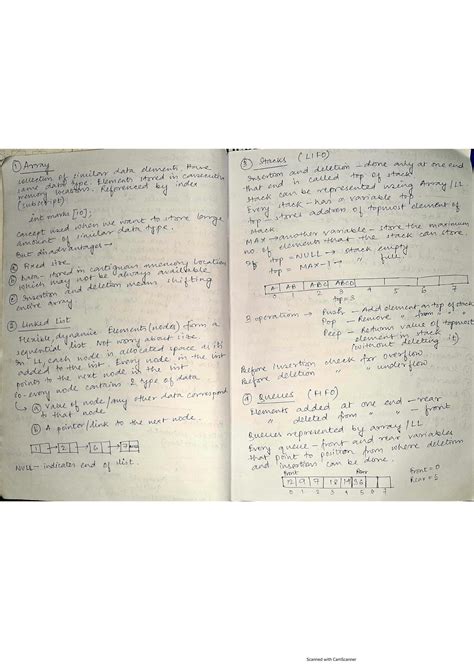 ① Array
collection of similar data elements. Have
same data type. Elements stored in consecutive
memory locations. Referenced by index
(subscript)
int marks [10];
Concept used when we want to store large
amount of similar data type.
But disadvantages →
ⓐ Fixed size
ⓑ Data - stored in contiguous memory location
which may not be always available
ⓒ Insertion and deletion means shifting
entire array.
② Linked List
Flexible, dynamic. Elements (nodes) form a
sequential list. Not worry about size.
In LL, each node is allocated space as it is
added to the list. Every node in the list
points to the next node in the list
So - every node contains 2 type of data.
ⓐ value of node / any other data correspond
to that node
ⓑ A pointer/link to the next node.
1 2 6 7
NULL - indicates end of list.
③ Stacks (LIFO)
Insertion and deletion - done only at one end
that end is called top of stack
Stack can be represented using Array/LL
Every stack - has a variable top
top - stores address of topmost element of
stack.
MAX → another variable - store the maximum
no. of elements that the stack can store.
If top = NULL → stack empty
top = MAX-1 → " full
A AB ABC ABCD
0 1 2 3 4 5 6 7
top=3
3 operation → Push - Add element on top of stack
Pop - Remove " from " "
Peep - Returns value of topmost
element in stack
(without deleting it)
Before insertion check for overflow
Before deletion " " underflow
④ Queues (FIFO)
Elements added at one end - rear
" deleted from " - front
Queues represented by array/LL
Every queue - front and rear variables
that point to position from where deletion
and insertion can be done.
Front Rear
12 9 7 18 14 36
0 1 2 3 4 5 6 7
Front = 0
Rear = 5
Scanned with CamScanner